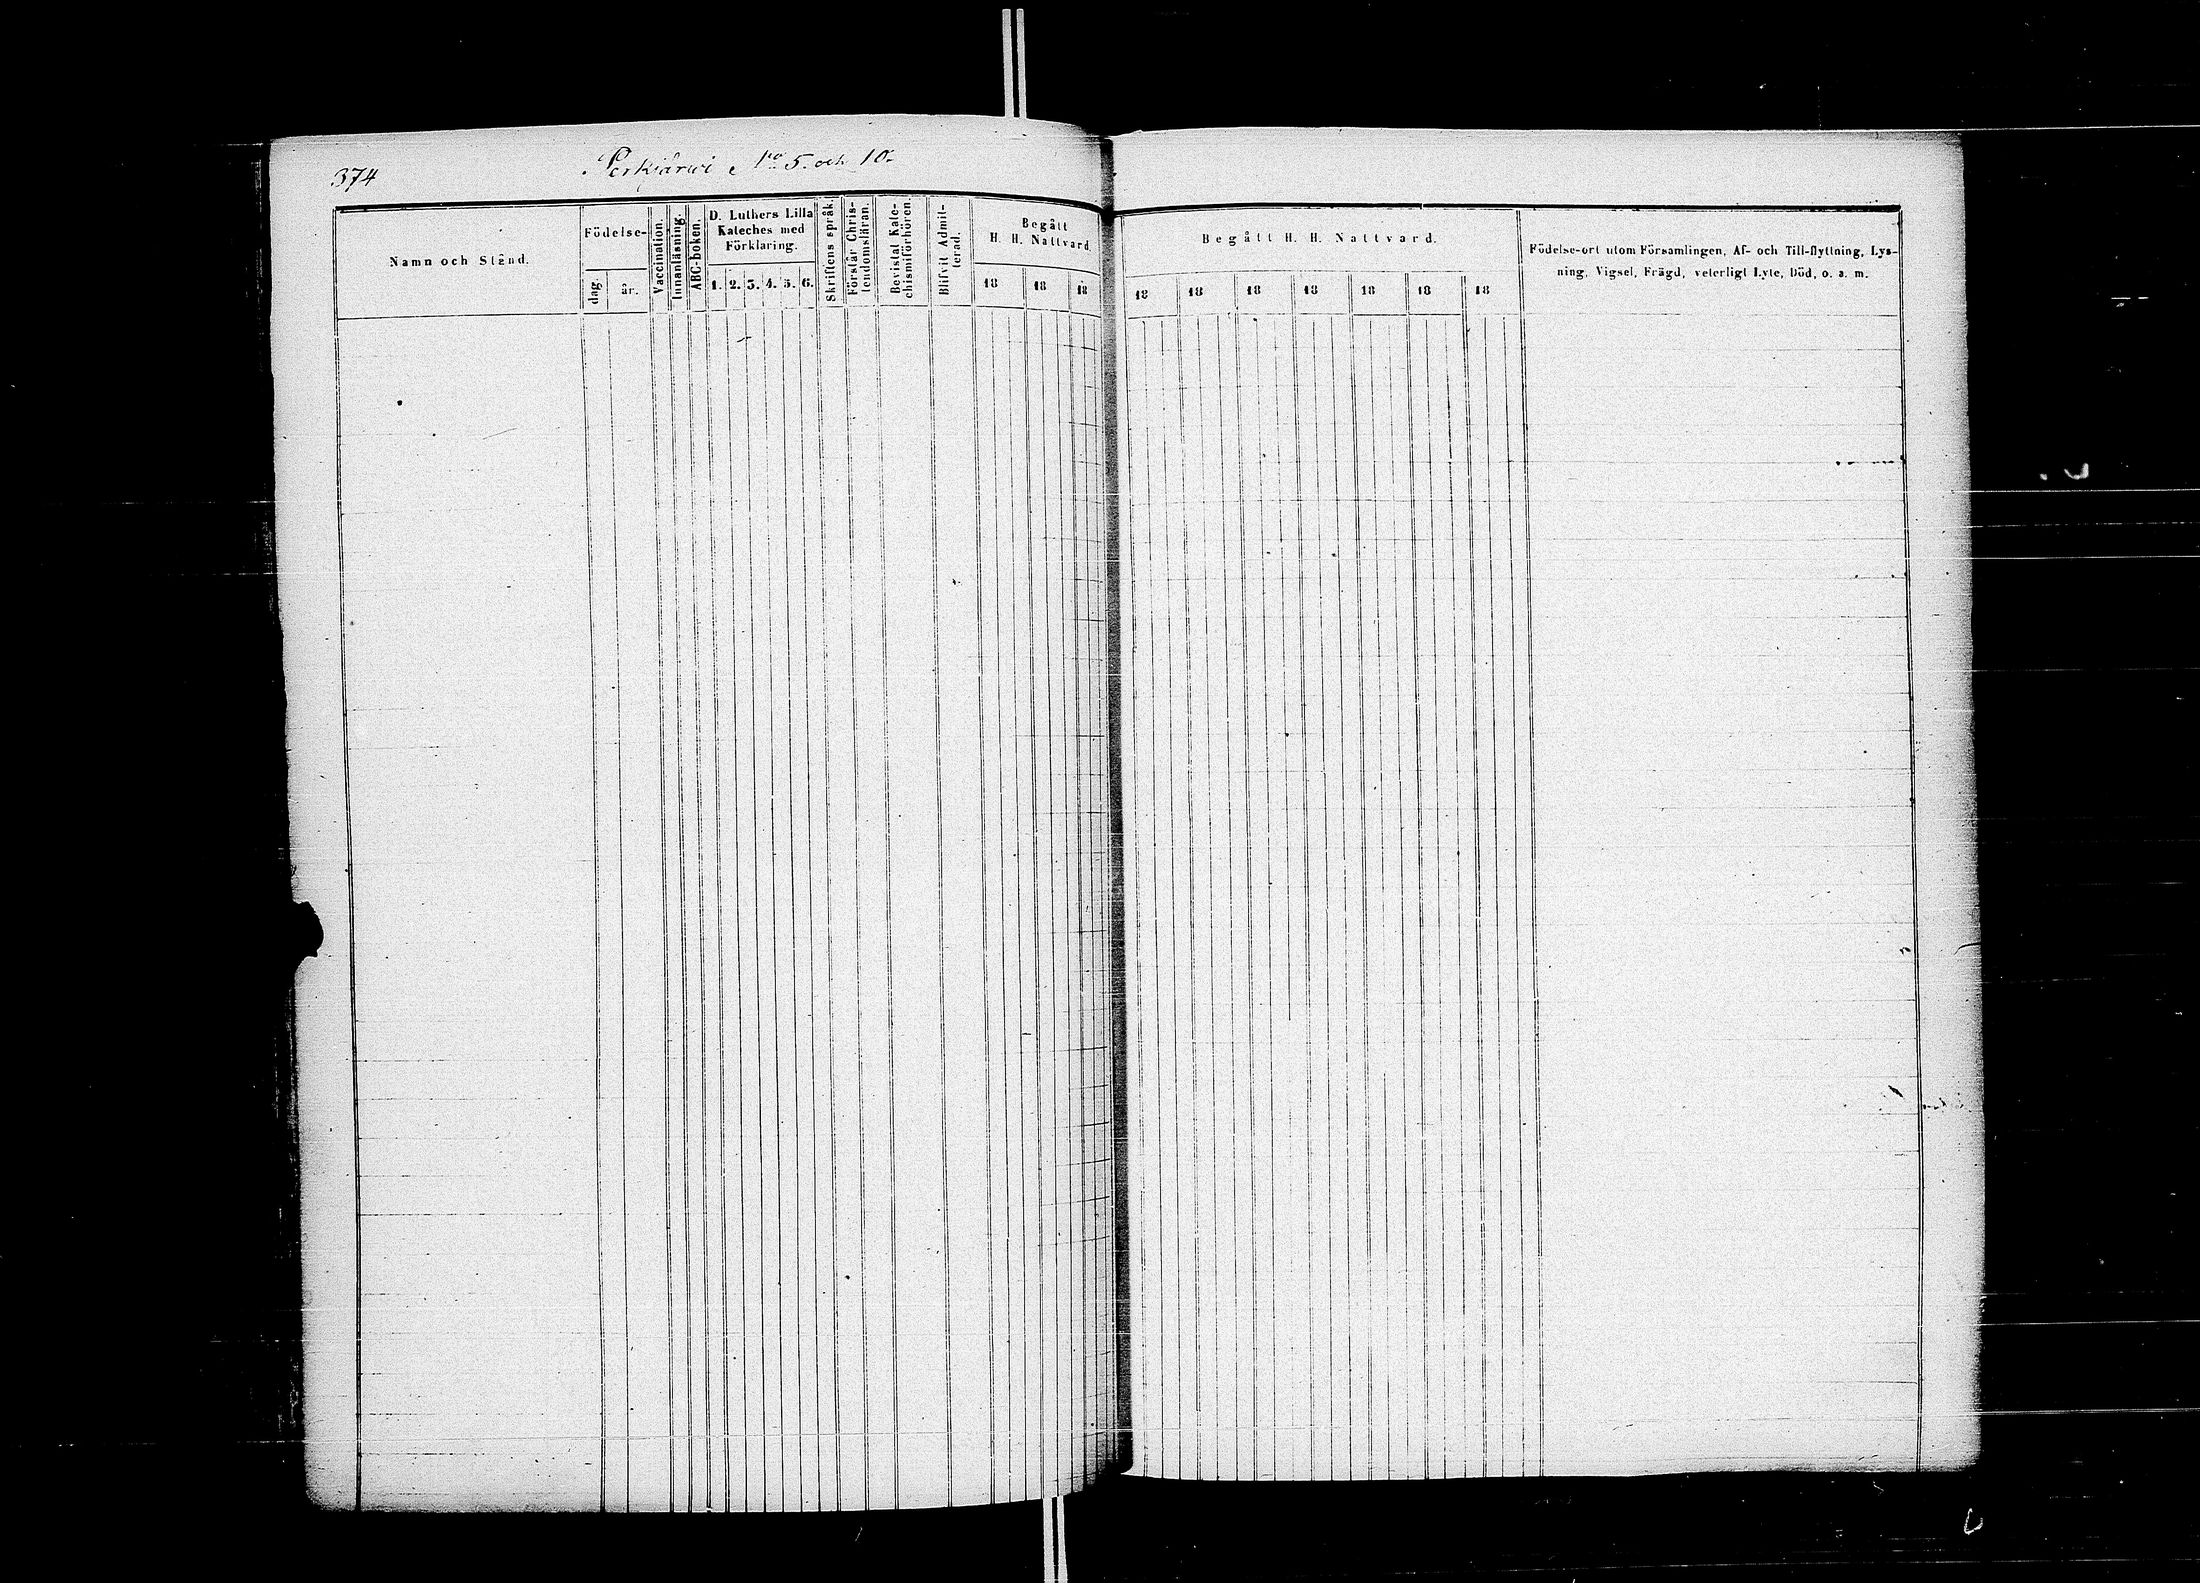 374
Perkjärwi No 5. och 10.
Namn och Stånd.
Födelse-
dag.
år.
Vaccination.
Innanläsning.
ABC-boken.
D. Luthers Lilla
Kateches med
Förklaring.
1. 2. 3. 4. 5. 6.
Skriftens språk.
Förstår Chris-
tendomsläran.
Bevistat Kate-
chismiförhören.
Blifvit Admit-
terad.
Begått
H. H. Nattvard.
18 18 18
Begått H. H. Nattvard.
18 18 18 18 18 18 18
Födelse-ort utom Församlingen, Af- och Till-flyttning, Lys-
ning, Vigsel, Frägd, veterligt Lyte, Död, o. s. m.